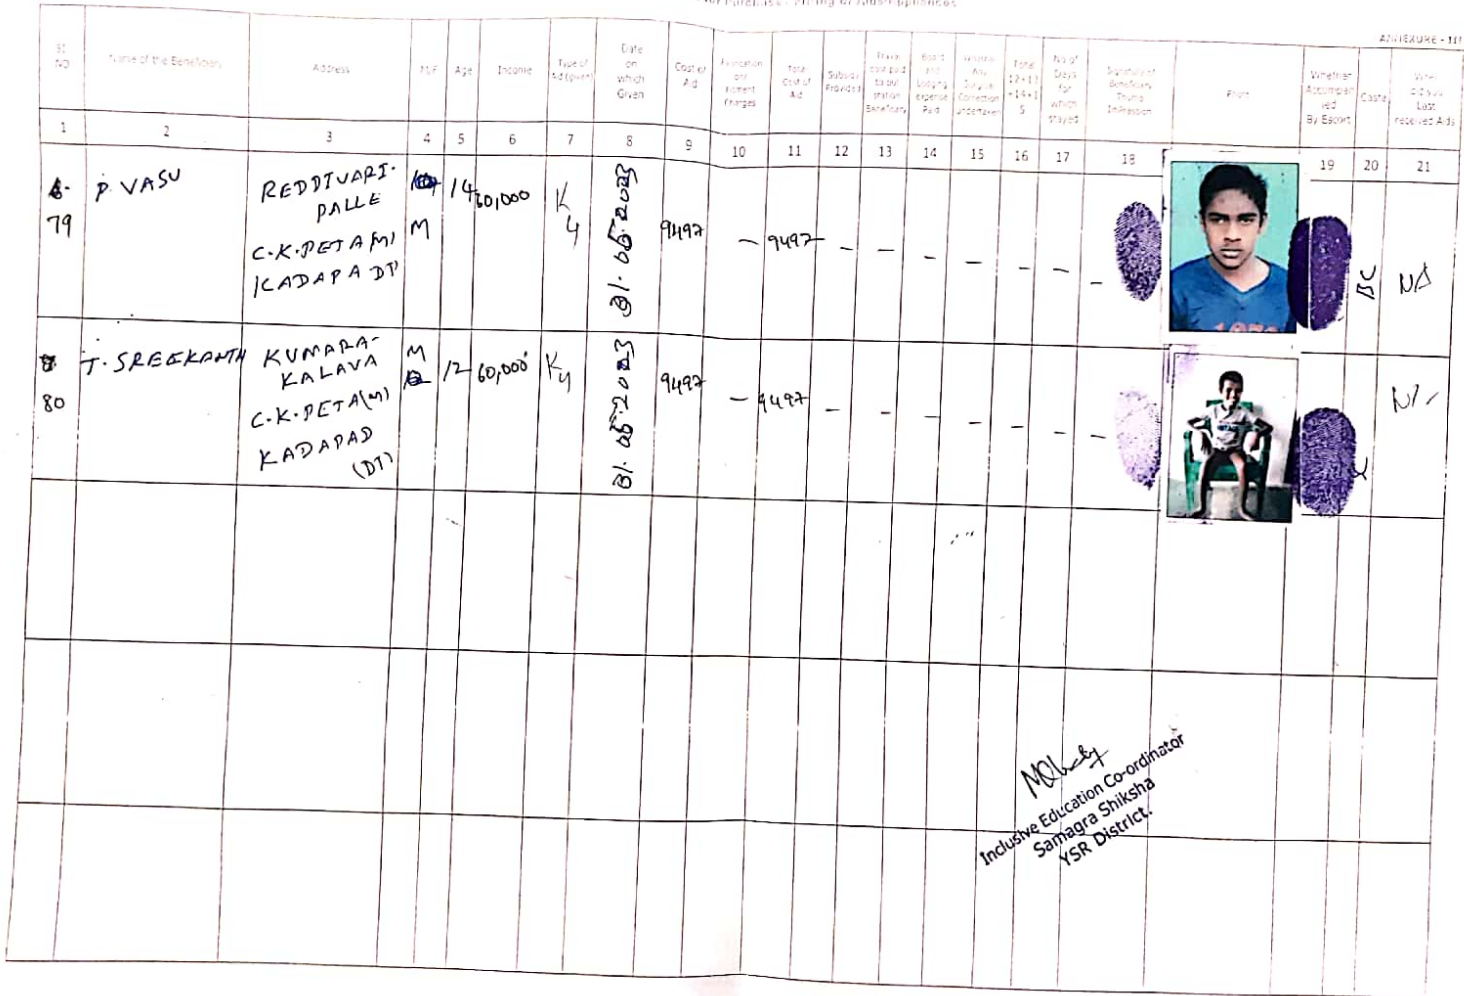 ANNEXURE - III
Sl NO
Name of the Beneficiary
Address
M/F
Age
Income
Type of Aid (given)
Date on which Given
Cost of Aid
Total Cost of Aid
Subsidy Provided
Travel cost paid to out station Beneficiary
Board and Lodging expense Paid
Total 12+13 +14+1 5
No of Days for which stayed
Signature of Beneficiary Thumb Impression
Photo
Whether Accompan ied By Escort
Caste
Last received Aids
1 2 3 4 5 6 7 8 9 10 11 12 13 14 15 16 17 18 19 20 21
79
P. VASU
REDDIVARI-
PALLE
C.K.PETA (M)
KADAPA DT
M
14
60,000
K
4
31.05.2023
9497
– 9497 – – – – – – –
BC
NA
80
T. SREEKANTH
KUMARA-
KALAVA
C.K.PETA (M)
KADAPAD
(DT)
M
12
60,000
K4
31.05.2023
9497
– 9497 – – – – – – –
Inclusive Education Co-ordinator
Samagra Shiksha
YSR District.